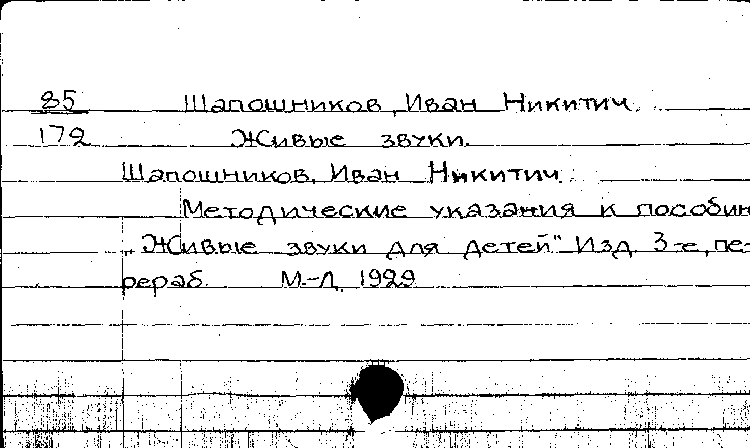 85 Шапошников, Иван Никитич.
172 Живые звуки.
Шапошников, Иван Никитич.
Методические указания к пособию
„Живые звуки для детей" Изд. 3-е, пе-
рераб. М.-Л. 1929